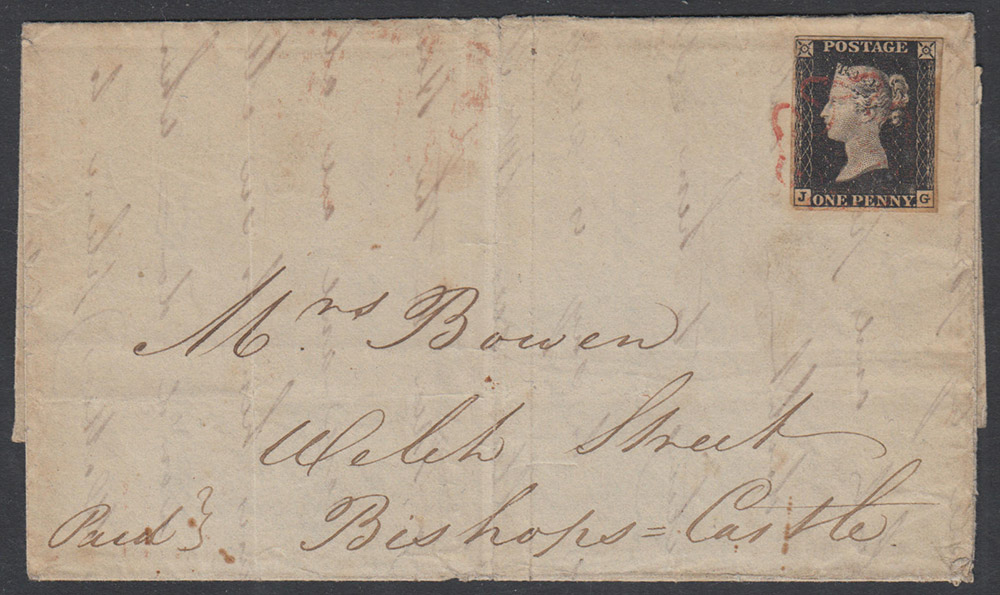 POSTAGE
J ONE PENNY G
Mrs. Bowen
Welch Street
Bishops=Castle.
Paid